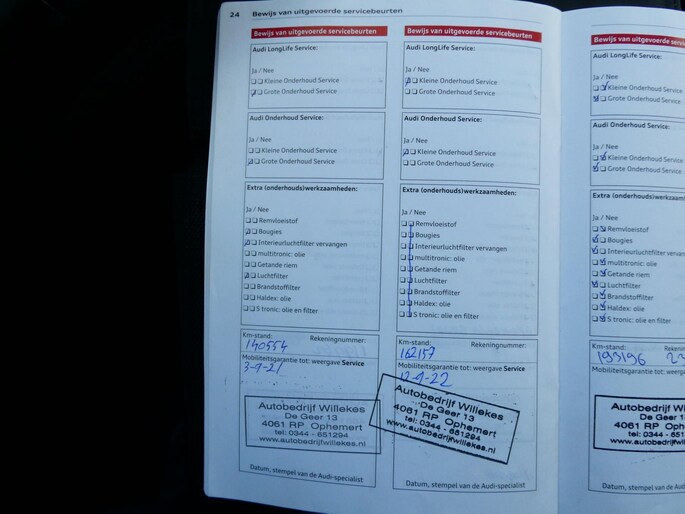 24 Bewijs van uitgevoerde servicebeurten
Bewijs van uitgevoerde servicebeurten
Audi LongLife Service:
Ja / Nee
Kleine Onderhoud Service
Grote Onderhoud Service
Audi Onderhoud Service:
Ja / Nee
Kleine Onderhoud Service
Grote Onderhoud Service
Extra (onderhouds)werkzaamheden:
Ja / Nee
Remvloeistof
Bougies
Interieurluchtfilter vervangen
multitronic: olie
Getande riem
Luchtfilter
Brandstoffilter
Haldex: olie
S tronic: olie en filter
Km-stand: Rekeningnummer:
140554
Mobiliteitsgarantie tot: weergave Service
3-9-21
Autobedrijf Willekes
De Geer 13
4061 RP Ophemert
tel: 0344 - 651294
www.autobedrijfwillekes.nl
Datum, stempel van de Audi-specialist
Bewijs van uitgevoerde servicebeurten
Audi LongLife Service:
Ja / Nee
Kleine Onderhoud Service
Grote Onderhoud Service
Audi Onderhoud Service:
Ja / Nee
Kleine Onderhoud Service
Grote Onderhoud Service
Extra (onderhouds)werkzaamheden:
Ja / Nee
Remvloeistof
Bougies
Interieurluchtfilter vervangen
multitronic: olie
Getande riem
Luchtfilter
Brandstoffilter
Haldex: olie
S tronic: olie en filter
Km-stand: Rekeningnummer:
162157
Mobiliteitsgarantie tot: weergave Service
12-9-22
Autobedrijf Willekes
De Geer 13
4061 RP Ophemert
tel: 0344 - 651294
www.autobedrijfwillekes.nl
Datum, stempel van de Audi-specialist
Bewijs van uitgevoerde service
Audi LongLife Service:
Ja / Nee
Kleine Onderhoud Service
Grote Onderhoud Service
Audi Onderhoud Service:
Ja / Nee
Kleine Onderhoud Service
Grote Onderhoud Service
Extra (onderhouds)werkzaam
Ja / Nee
Remvloeistof
Bougies
Interieurluchtfilter vervan
multitronic: olie
Getande riem
Luchtfilter
Brandstoffilter
Haldex: olie
S tronic: olie en filter
Km-stand: Rekening
193196
Mobiliteitsgarantie tot: weerga
Autobedrijf Wil
De Geer 13
4061 RP Oph
tel: 0344 - 65
www.autobedrijfw
Datum, stempel van de Au